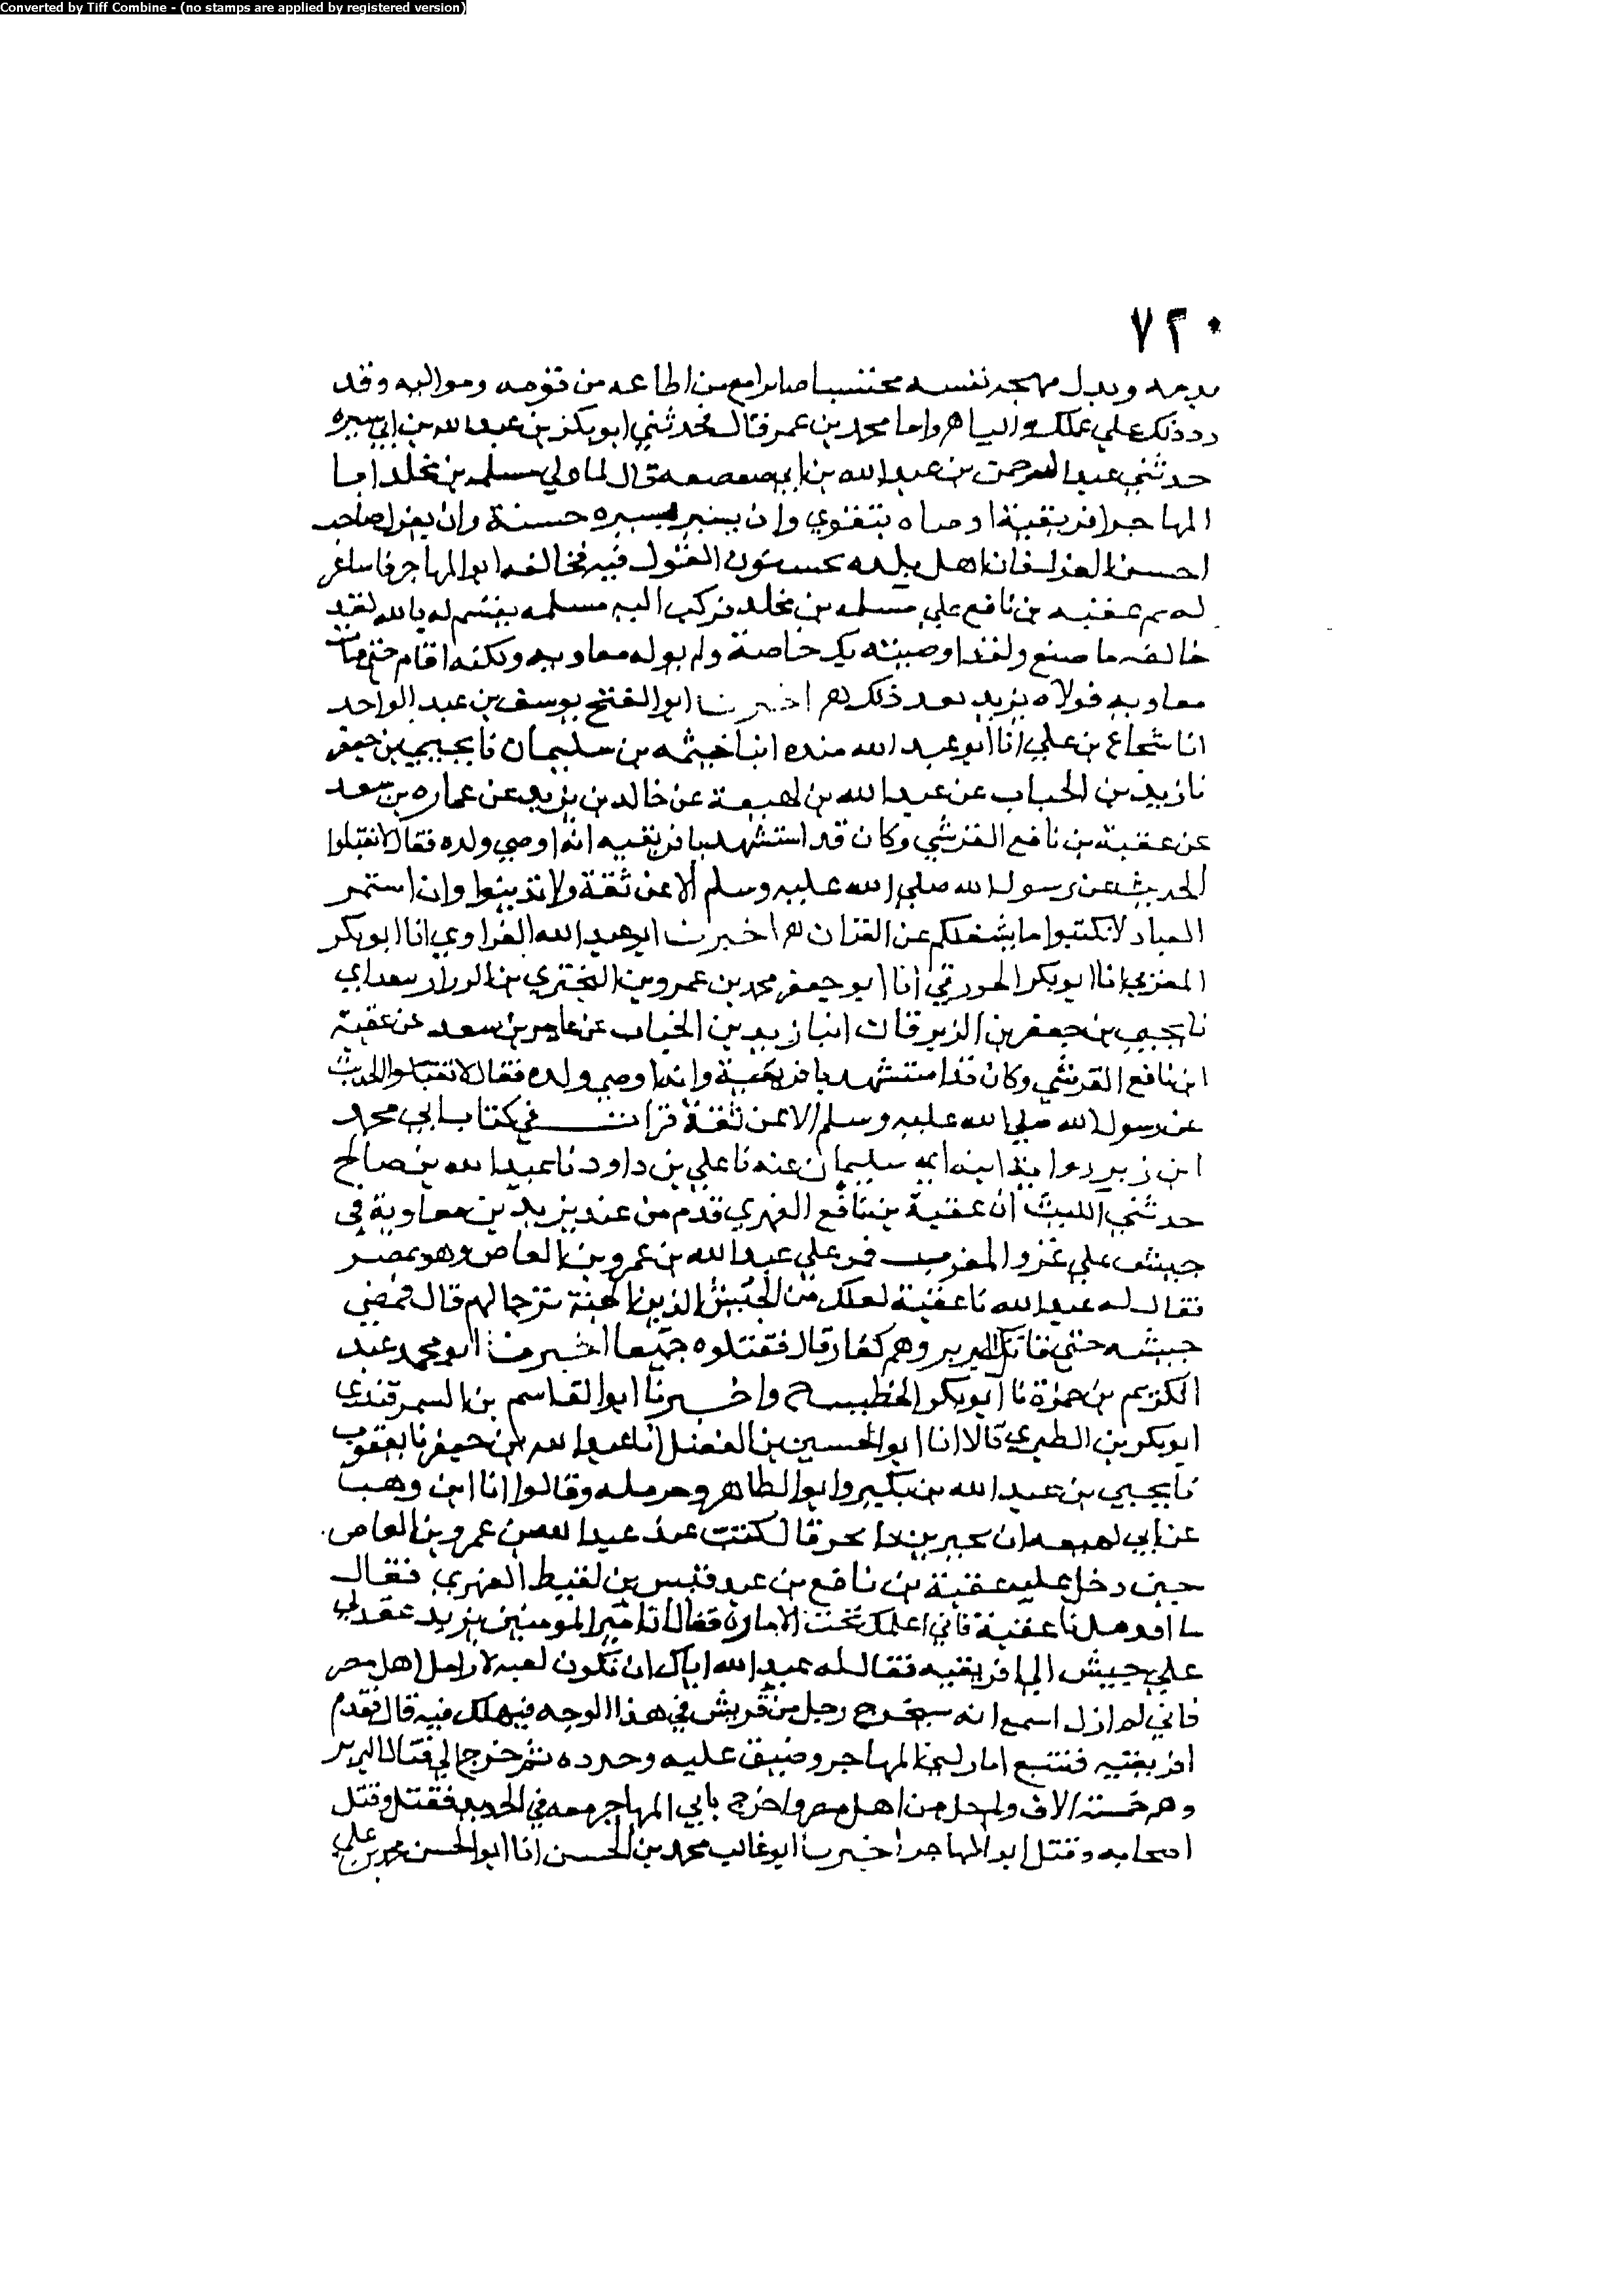 Converted by Tiff Combine - (no stamps are applied by registered version)
٧٢٠
وبدل مهجه نفسه محتسبا صابرا مع من اطاعه من قومه ومواليه وقد
ذلك علي واما محمد بن عمر فقال فحدثني ابو بكر بن عبد الله بن ابي سبره
حدثني عبد الرحمن بن عبد الله بن ابي صعصعه قال لما ولي مسلمه بن مخلد ابا
المهاجر افريقية اوصاه بتقوي وان يسير بسيره حسنة وان يعزل صاحبه
احسن العزل فان اهل بلده يحسنون القول فيه فخالفه ابو المهاجر فاسا عزله
عقبه بن نافع علي مسلمه بن مخلد فركب اليه مسلمه يقسم له بالله لقد
خالفه ما صنع ولقد اوصيته بك خاصة ولم يوله معاويه ولكنه اقام حتي مات
معاويه فولاه يزيد بعد ذلك اخبرنا ابو الفتح يوسف بن عبد الواحد
انا شجاع بن علي انا ابو عبد الله منده انبا خيثمه بن سليمان نا يحيي بن جعفر
نا زيد بن الحباب عن عبد الله بن لهيعة عن خالد بن يزيد عن عماره بن سعد
عن عقبة بن نافع القرشي وكان قد استشهد بافريقيه انه اوصي ولده فقال لا تقبلوا
الحديث عن رسول الله صلي الله عليه وسلم الا عن ثقة ولا تدينوا وان لبستم
العباد لا تكتبوا ما يشغلكم عن القران اخبرنا ابو عبد الله الفراوي انا ابو بكر
المغربي انا ابو بكر الجوزقي انا ابو جعفر محمد بن عمرو بن البختري بن الرزاز
نا يحيي بن جعفر بن الزبرقان انبا زيد بن الحباب عن عامر بن سعد عن عقبة
ابن نافع القرشي وكان قد استشهد بافريقية وانه اوصي ولده فقال لا تقبلوا الحديث
عن رسول الله صلي الله عليه وسلم الا عن ثقة قرات في كتاب ابي محمد
ابن زبر رواية ابنه ابي سليمان عنه نا علي بن داود نا عبد الله بن صالح
حدثني الليث ان عقبة بن نافع الفهري قدم من عند يزيد بن معاوية في
جيش علي غزو المغرب فمر علي عبد الله بن عمرو بن العاص وهو بمصر
فقال له عبد الله يا عقبة لعلك من الجيش الذين الجنة برحالهم قال فمضي
جيشه حتي قاتل البربر وهم كفار قال فقتلوه جميعا اخبرنا ابو محمد عبد
الكريم بن حمزة نا ابو بكر الخطيب ح واخبرنا ابو القاسم بن السمرقندي
ابو بكر بن الطبري قالا انا ابو الحسين بن الفضل انا عبد الله بن جعفر نا يعقوب
نا يحيي بن عبد الله بن بكير وابو الطاهر وحرمله وقالوا انا ابن وهب
عن ابي لهيعه ان بحير بن ذاخر قال كنت عند عبد الله بن عمرو بن العاص
حين دخل عليه عقبة بن نافع بن عبد قيس بن لقيط الفهري فقال
ما اقدمك يا عقبة فاني اعلمك تحب الامارة فقال ان امير المومنين يزيد عقد لي
علي جيش الي افريقيه فقال له عبد الله اياك ان تكون لعبه لارامل اهل مصر
فاني لم ازل اسمع انه سيخرج رجل من قريش في هذا الوجه فيهلك فيه قال فقدم
افريقيه فتتبع اثار ابي المهاجر وضيق عليه وحدده ثم خرج الي قتال البربر
وهم خمسة الاف رجل من اهل مصر واخرج بابي المهاجر معه في الحديد فقتل وقتل
اصحابه وقتل ابو المهاجر اخبرنا ابو غالب محمد بن الحسن انا ابو الحسن محمد بن علي